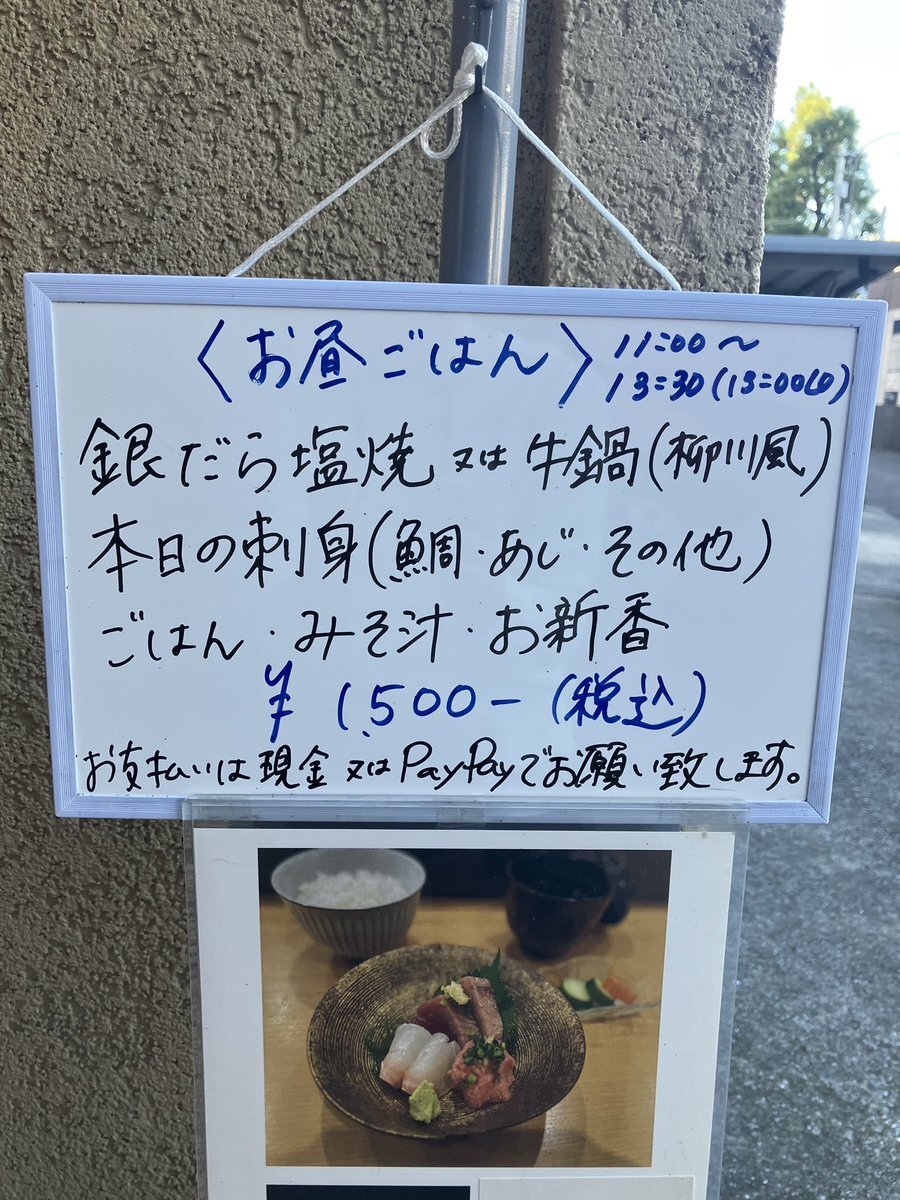 〈お昼ごはん〉 11:00〜
13:30(13:00LO)
銀だら塩焼 又は 牛鍋(柳川風)
本日の刺身(鯛・あじ・その他)
ごはん・みそ汁・お新香
¥1,500-(税込)
お支払いは現金又はPayPayでお願い致します。